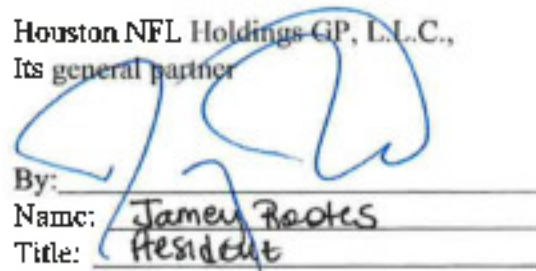 Houston NFL Holdings GP, L.L.C.,
Its general partner
By:
Name: Jamey Rootes
Title: President